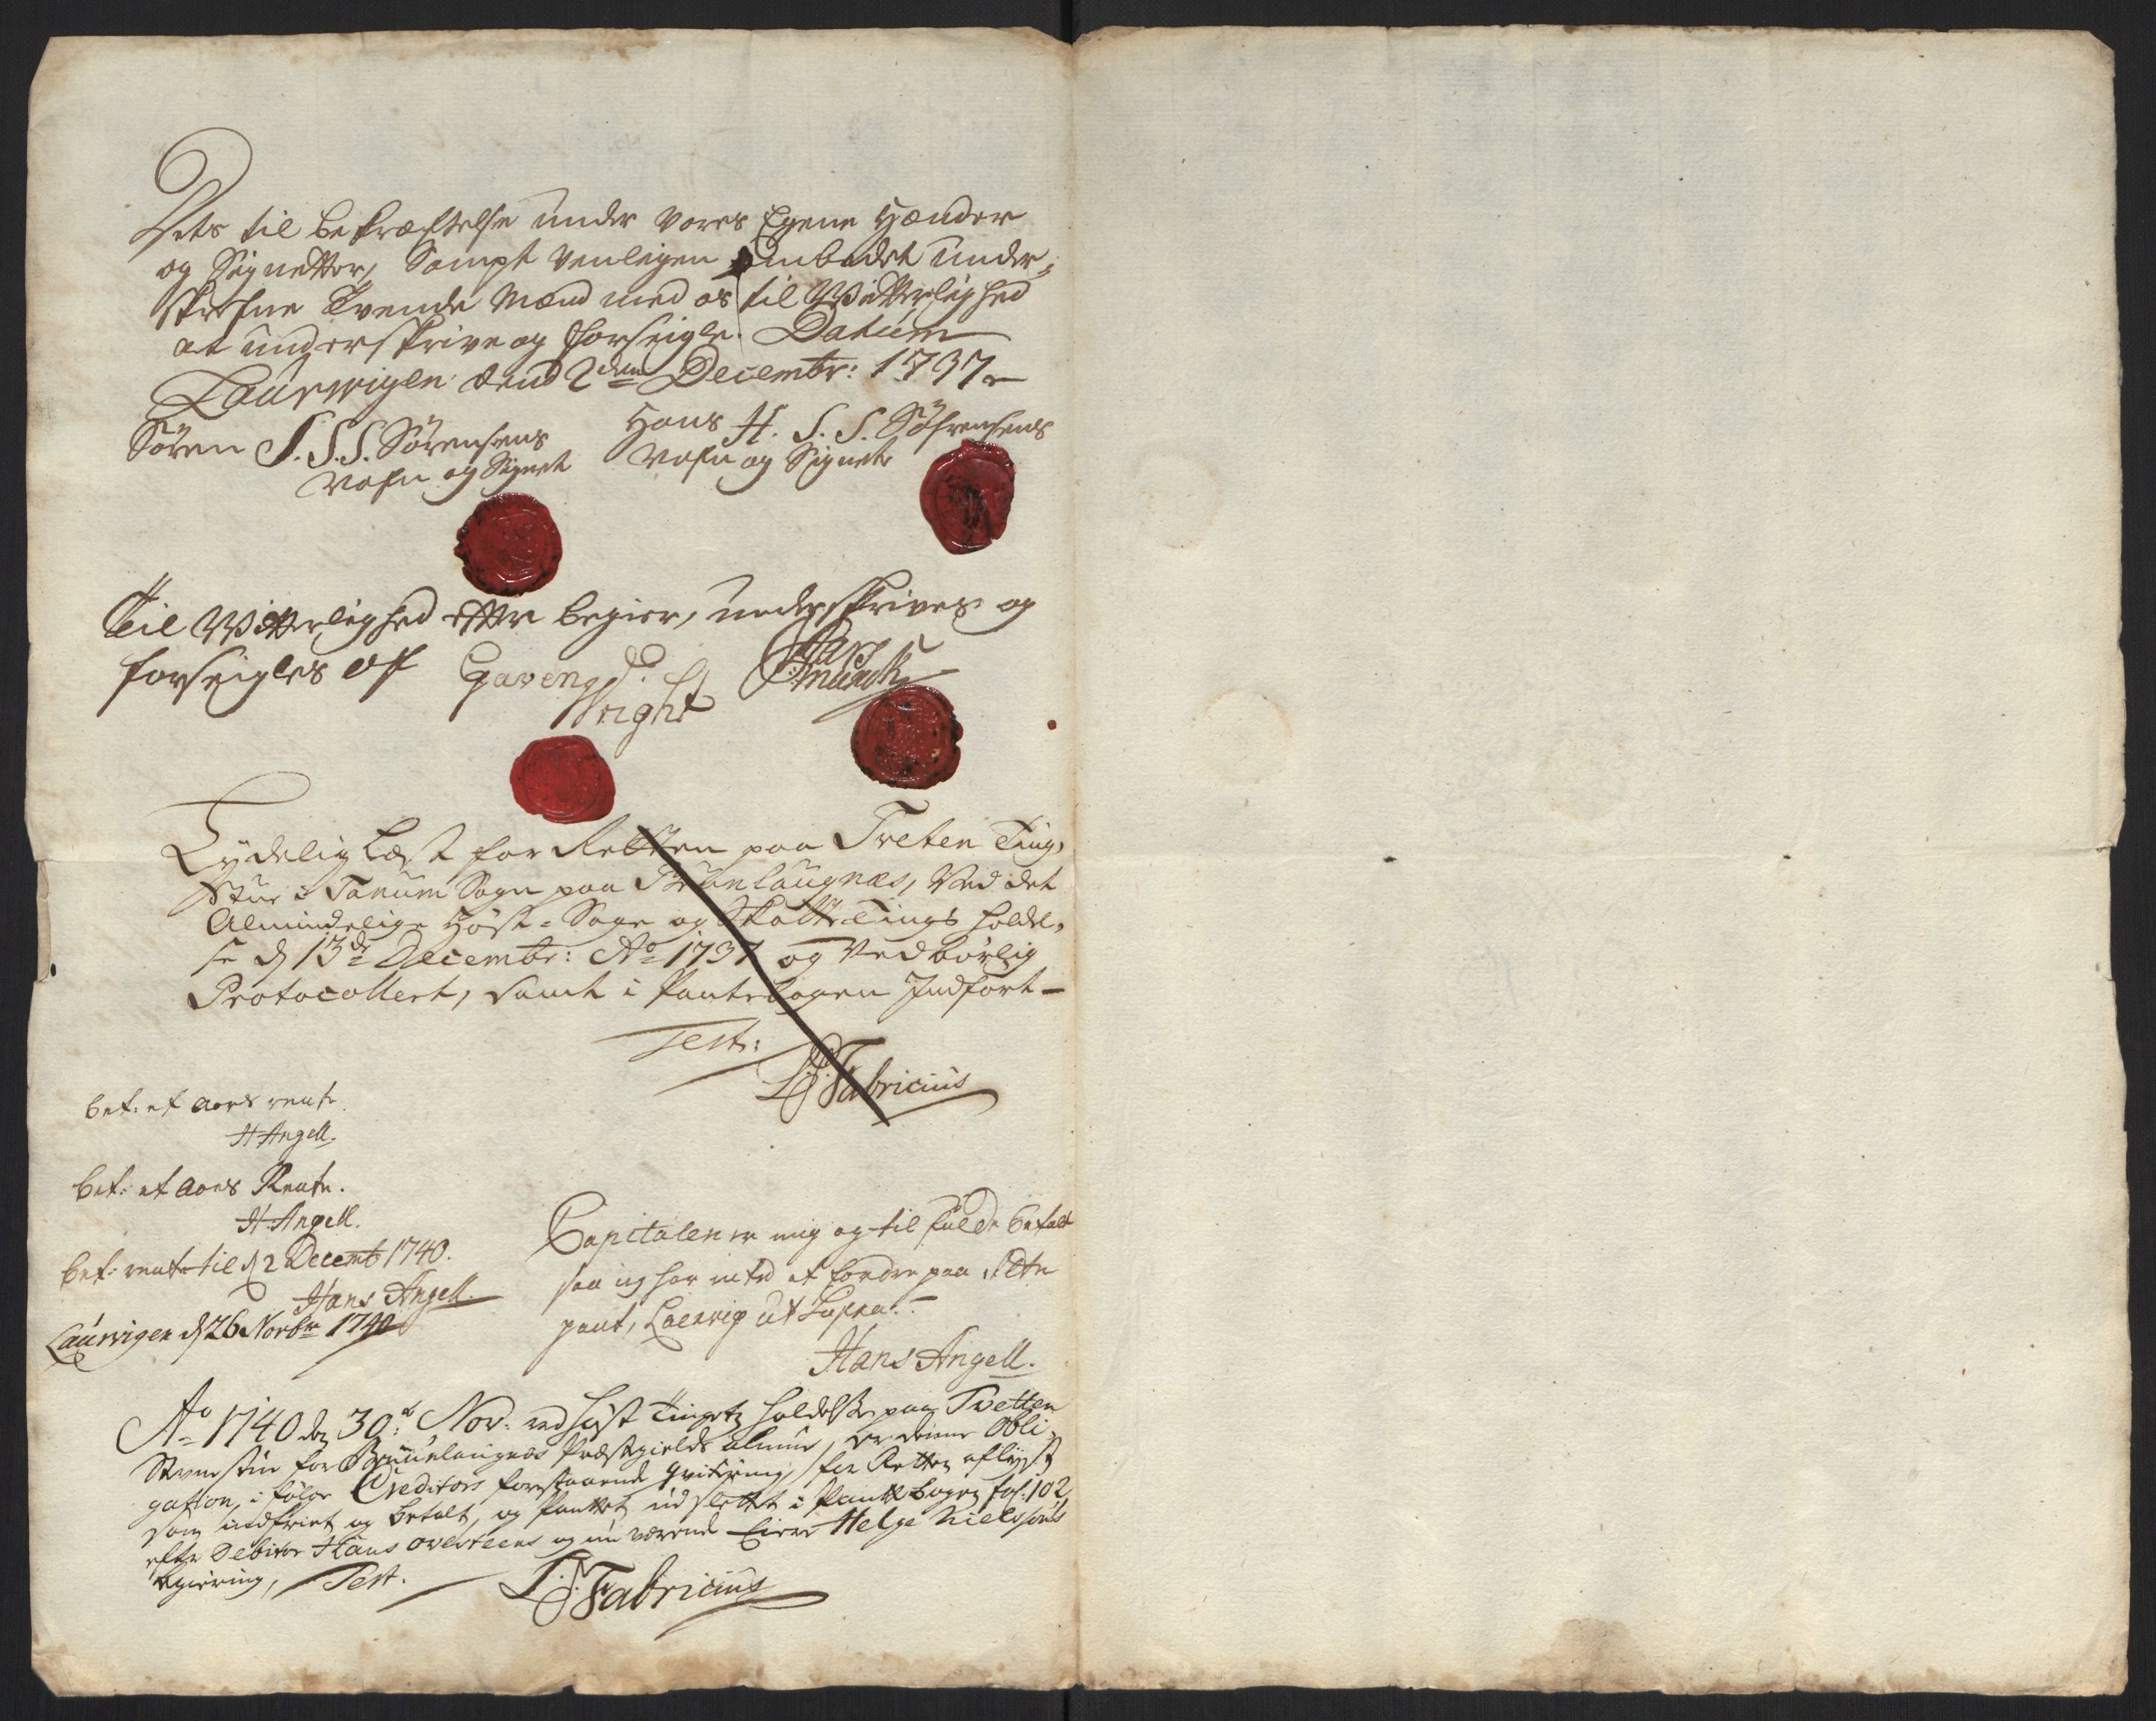 Dets til bekræftelse under vores Egene Hænder
og Signetter, Sampt venligen ombedet under-
skrefne Tvende Mænd med os til Witterlighed
at underskrive og forseigle. Datum
Laurwigen dend 2den Decembr: 1737
Søren S. S. S. Sørensens
Nafn og Signet
Hans H. S. S. Søfrensens
Nafn og Signet
Til Witterlighed efter begier, underskrives og
forseigles af
Wright
Lydelig Læst for Retten paa Treten Ting-
stue i Tanum Sogn paa Brunlaugnæs, Ved det
Almindelige Høst-Sage og Skatte Tings holdel-
se d 13de Decembr: Ao 1737 og Vedbørlig
Protocollert, samt i Pantebogen Indført
Test:
Fabricius
bet: et aars rente.
H Angell.
bet: et aars Rente.
H. Angell.
bet: rente til d 2 Decemb 1740.
Hans Angell.
Laurvigen d 26 Novbr 1740
Capitalen er mig og til fulde betalt
saa ieg har inted at fordre paa dette
pant, Laervig ut Supra.
Hans Angell.
Ao 1740 den 30t Nov. ved høst Tingets holdelse paa Tvetten
Stevnestue for Brunlaugnæs Præstegields almue, er denne Obli-
gation, i følge Creditors forestaaende Qvitering, for Retten aflyst
som indfriet og betalt, og Pantet udslettet i Pantebogen fol: 102
efter Debitor Hans Oversteens og nu værende Eiere Helge Nielssøns
begiering, Test.
Fabricius